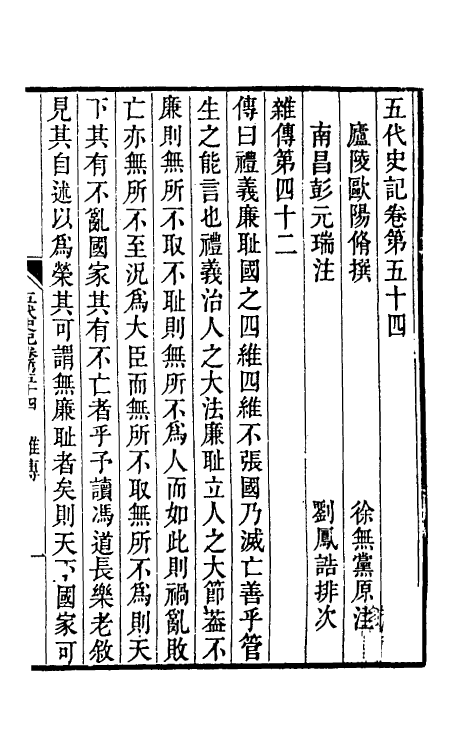 五代史記卷第五十四
廬陵歐陽脩撰　徐無黨原注
南昌彭元瑞注　劉鳳誥排次
雜傳第四十二
傳曰禮義廉恥國之四維四維不張國乃滅亡善乎管
生之能言也禮義治人之大法廉恥立人之大節葢不
廉則無所不取不恥則無所不為人而如此則禍亂敗
亡亦無所不至況為大臣而無所不取無所不為則天
下其有不亂國家其有不亡者乎予讀馮道長樂老敘
見其自述以為榮其可謂無廉恥者矣則天下國家可
五代史記卷五十四　雜傳　一